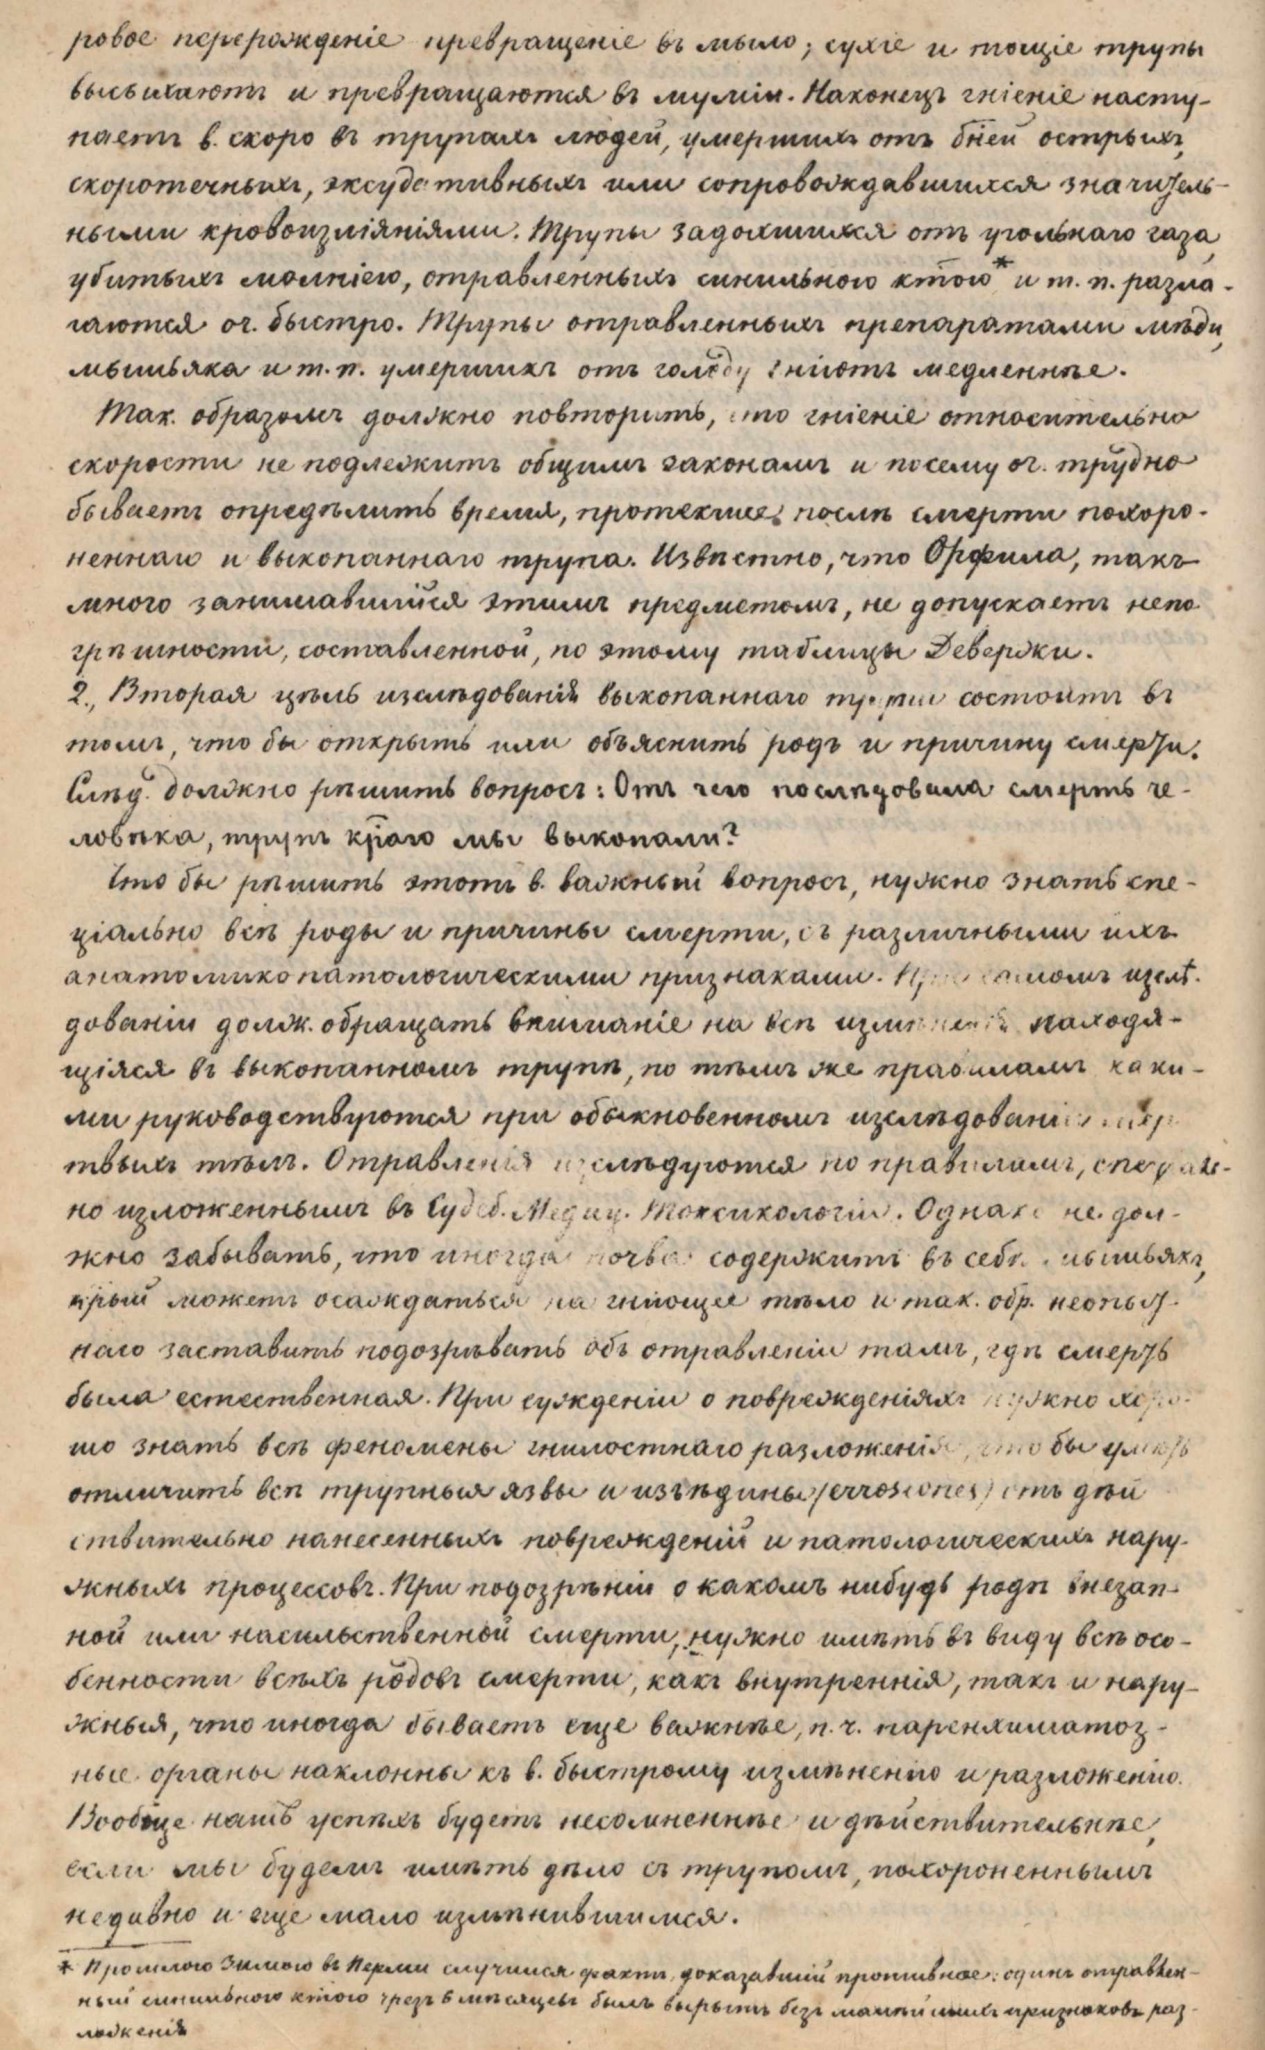 ровое перерожденіе превращеніе въ мыло; сухіе и тощіе трупы
высыхаютъ и превращаются въ муміи. Наконецъ гніеніе насту-
паетъ в. скоро въ трупахъ людей, умершихъ отъ бней острыхъ,
скоротечныхъ, эксудативныхъ или сопровождавшихся значитель-
ными кровоизліяніями. Трупы задохшихся отъ угольнаго газа,
убитыхъ молніею, отравленныхъ синильною ктою* и т. п. разла-
гаются оч. быстро. Трупы отравленныхъ препаратами мѣди,
мышьяка и т. п. умершихъ отъ голоду гніютъ медленнѣе.
Так. образомъ должно повторить, что гніеніе относительно
скорости не подлежитъ общимъ законамъ и посему оч. трудно
бываетъ опредѣлить время, протекшее послѣ смерти похоро-
неннаго и выкопаннаго трупа. Извѣстно, что Орфила, такъ
много занимавшійся этимъ предметомъ, не допускаетъ непо
грѣшности, составленной, по этому таблицы Девержи.
2., Вторая цѣль изслѣдованія выкопаннаго трупа состоитъ въ
томъ, что бы открыть или объяснить родъ и причину смерти.
Слѣд. должно рѣшить вопросъ: Отъ чего послѣдовала смерть че-
ловѣка, трупъ краго мы выкопали?
Что бы рѣшить этотъ в. важный вопросъ, нужно знать спе-
ціально всѣ роды и причины смерти, съ различными ихъ
анатомико патологическими признаками. При самомъ изслѣ-
дованіи долж. обращать вниманіе на всѣ измѣненія находя-
щіяся въ выкопанномъ трупѣ, по тѣмъ же правиламъ каки-
ми руководствуются при обыкновенномъ изслѣдованіи мер
твыхъ тѣлъ. Отравленія изслѣдуются по правиламъ, спеціаль-
но изложеннымъ въ Судеб. Медиц. Токсикологіи. Однако не дол-
жно забывать, что иногда почва содержитъ въ себѣ мышьякъ,
крый можетъ осаждаться на гніющее тѣло и так. обр. неопыт-
наго заставить подозрѣвать объ отравленіи тамъ, гдѣ смерть
была естественная. При сужденіи о поврежденіяхъ нужно хоро-
шо знать всѣ феномены гнилостнаго разложенія, что бы умѣть
отличить всѣ трупныя язвы и изъѣдины (errosiones) отъ дѣй
ствительно нанесенныхъ поврежденій и патологическихъ нару-
жныхъ процессовъ. При подозрѣніи о какомъ нибудь родѣ внезап-
ной или насильственной смерти, нужно имѣть въ виду всѣ осо-
бенности всѣхъ родовъ смерти, какъ внутреннія, такъ и нару-
жныя, что иногда бываетъ еще важнѣе, п. ч. паренхиматоз-
ные органы наклонны къ в. быстрому измѣненію и разложенію.
Вообще нашъ успѣхъ будетъ несомненнѣе и дѣйствительнѣе,
если мы будемъ имѣть дѣло съ трупомъ, похороненнымъ
недавно и еще мало измѣнившимся.
* Прошлою Зимою въ Перми случился фактъ, доказавшій противное: одинъ отравлен-
ный синильною ктою чрезъ 6 мѣсяцевъ былъ вырытъ безъ малѣйшихъ признаковъ раз-
ложенія